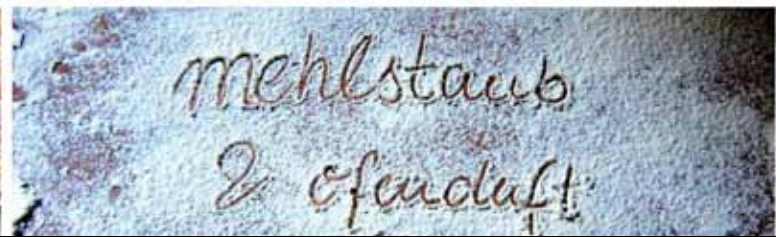 mehlstaub
& ofenduft